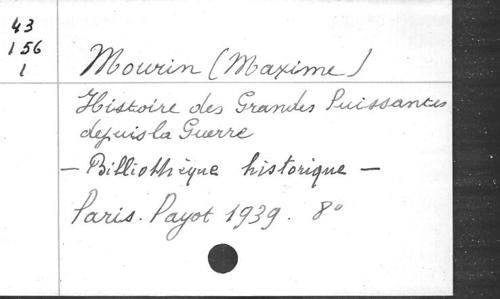 43
156
1
Mourin (Maxime)
Histoire des Grandes Puissantes
depuis la Guerre
- Bibliothèque historique -
Paris. Payot 1939. 8°